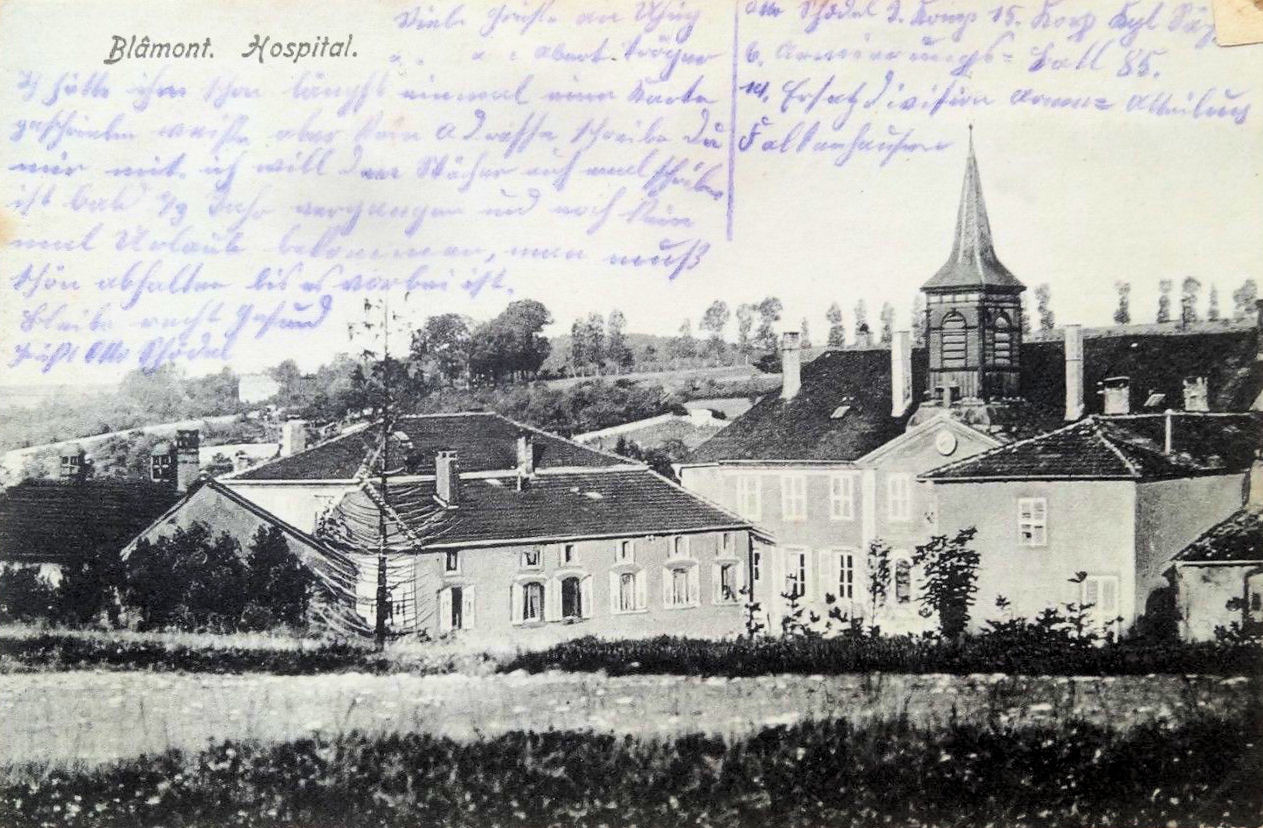 Blâmont. Hospital.
Viele Grüße an
" " "
Ich hätte ihm schon längst einmal eine Karte
geschrieben weiß aber kein Adresse schreibe du
mir mit. ich will dem auch mal schreiben
ist bald 1/2 Jahr vergangen und noch kein
mal Urlaub bekommen, man muß
schön abhalten bis es vorbei ist.
Bleibe recht Gesund
Gruß Otto Schödel
Otto Schödel 2. Komp 15. Korp Kgl
6. Armierungs-Batl 85.
Ersatzdivision Armee Abteilung
Falkenhausen